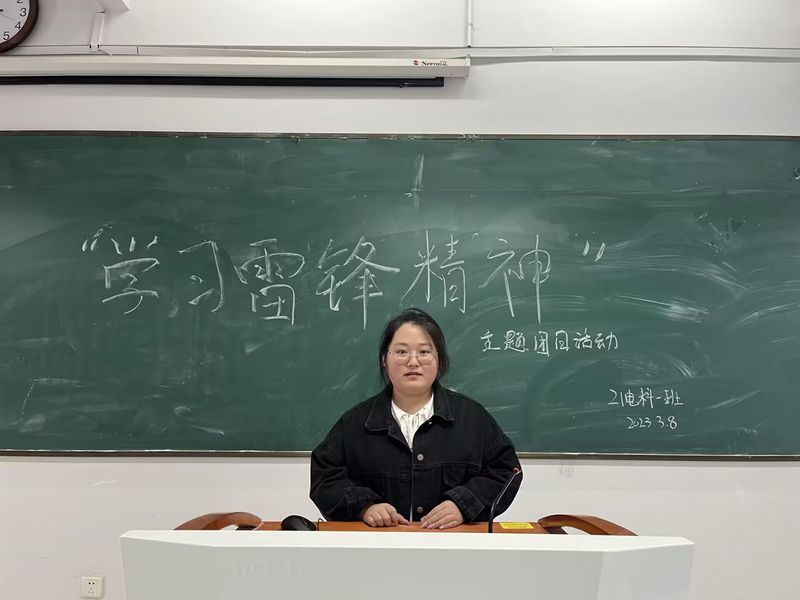 2
3
4
5
NEWVIDEAL
“学习雷锋精神”
主题团日活动
21电科一班
2023.3.8